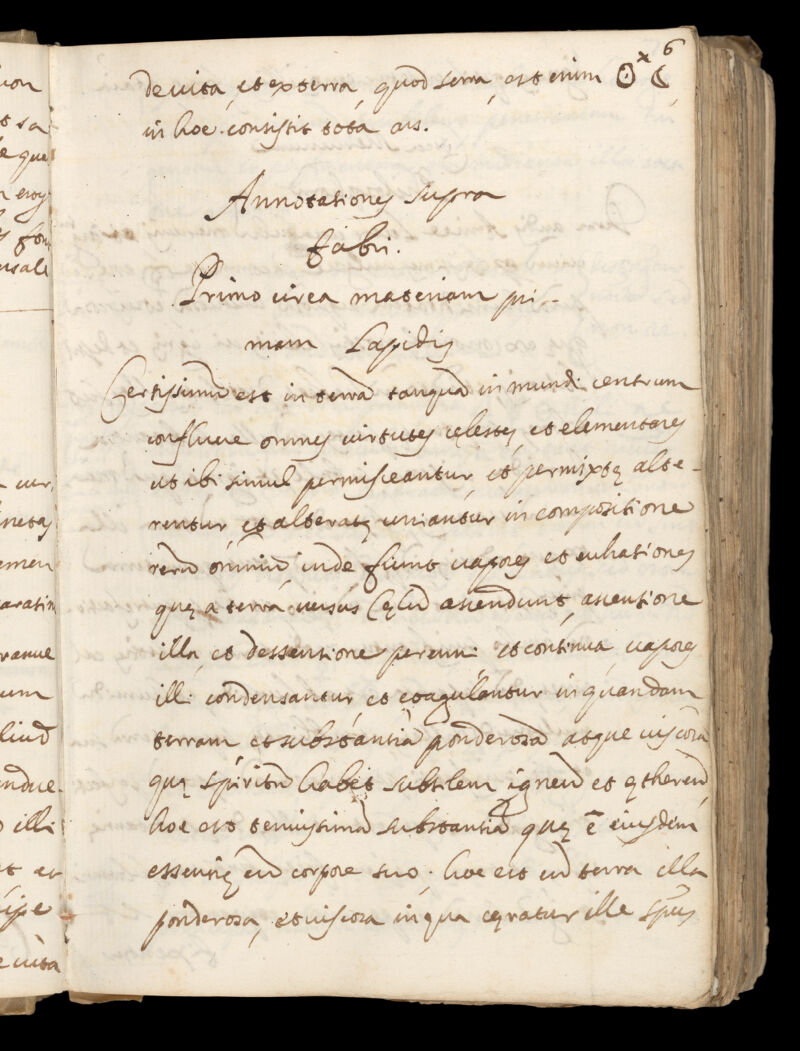 6
de vita, et ex terra, quod serra, est enim ☉ × ☾
in hoc consistit tota ars.
Annotationes supra
fabri.
Primo circa materiam pri-
mam Lapidis
Certissimũ est in terrã tanquã in mundi centrum
confluere omnes virtutes cęlestes, et elementares
ut ibi simul permisceantur et permixtę alte-
rentur et alteratę uniantur in compositione
rerũ omniũ inde fiunt vapores et exhationes
quę a terra versus Cęlũ ascendunt, ascentione
illa, et dessentione perenni et continua, vapores
illi condensantur et coagulantur in quandam
terram et substantiã ponderosã atque viscosã
quę spiritũ habet subtilem igneũ et ęthereũ,
hoc est tenuissimã substantiã quę ẽ eiusdem
essentię cũ corpore suo. hoc est cũ terra illa
ponderosa, et viscosa in qua cęratur ille sp̃us
von
et sa
e que
fon
rsale
cur,
netas
emen
aratin
ranue
um
liud
ndue
illi
et et
ipe
e vita